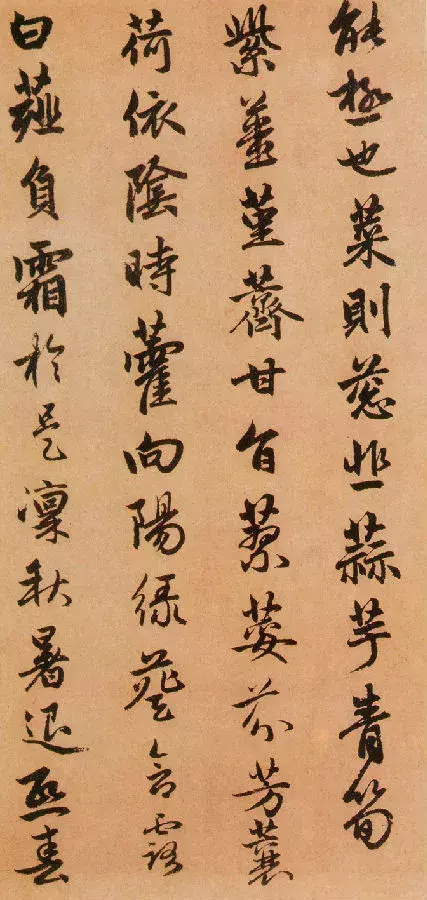 能極也菜則葱韭蒜芋青筍
紫薑菫薺甘旨蓼荽芬芳蘘
荷依陰時藿向陽綠葵含露
白薤負霜於是凜秋暑退熙春